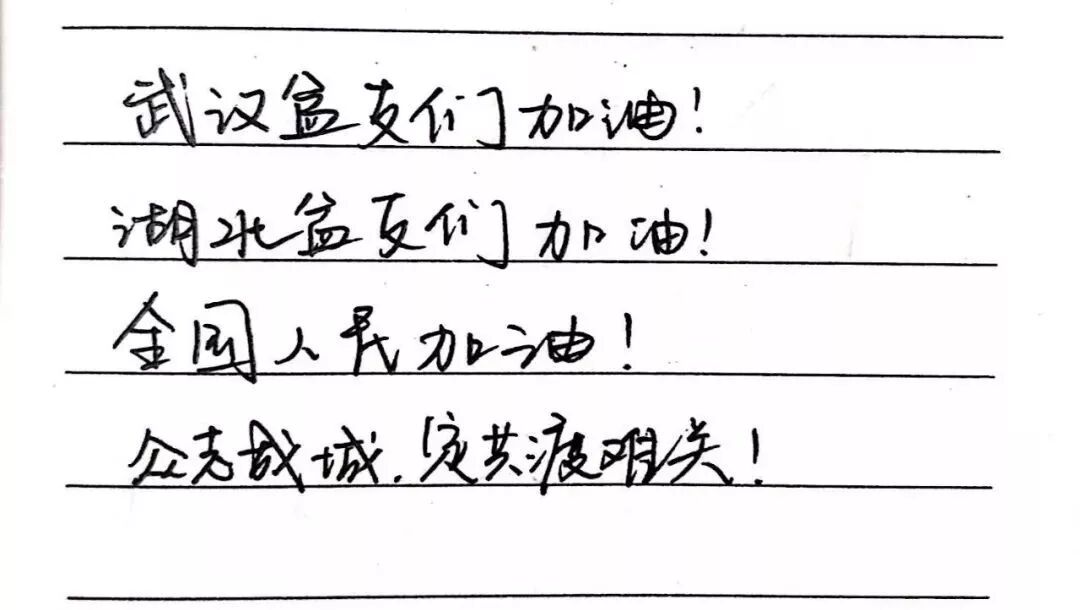 武汉盆友们加油!
湖北盆友们加油!
全国人民加油!
众志成城,定共渡难关!